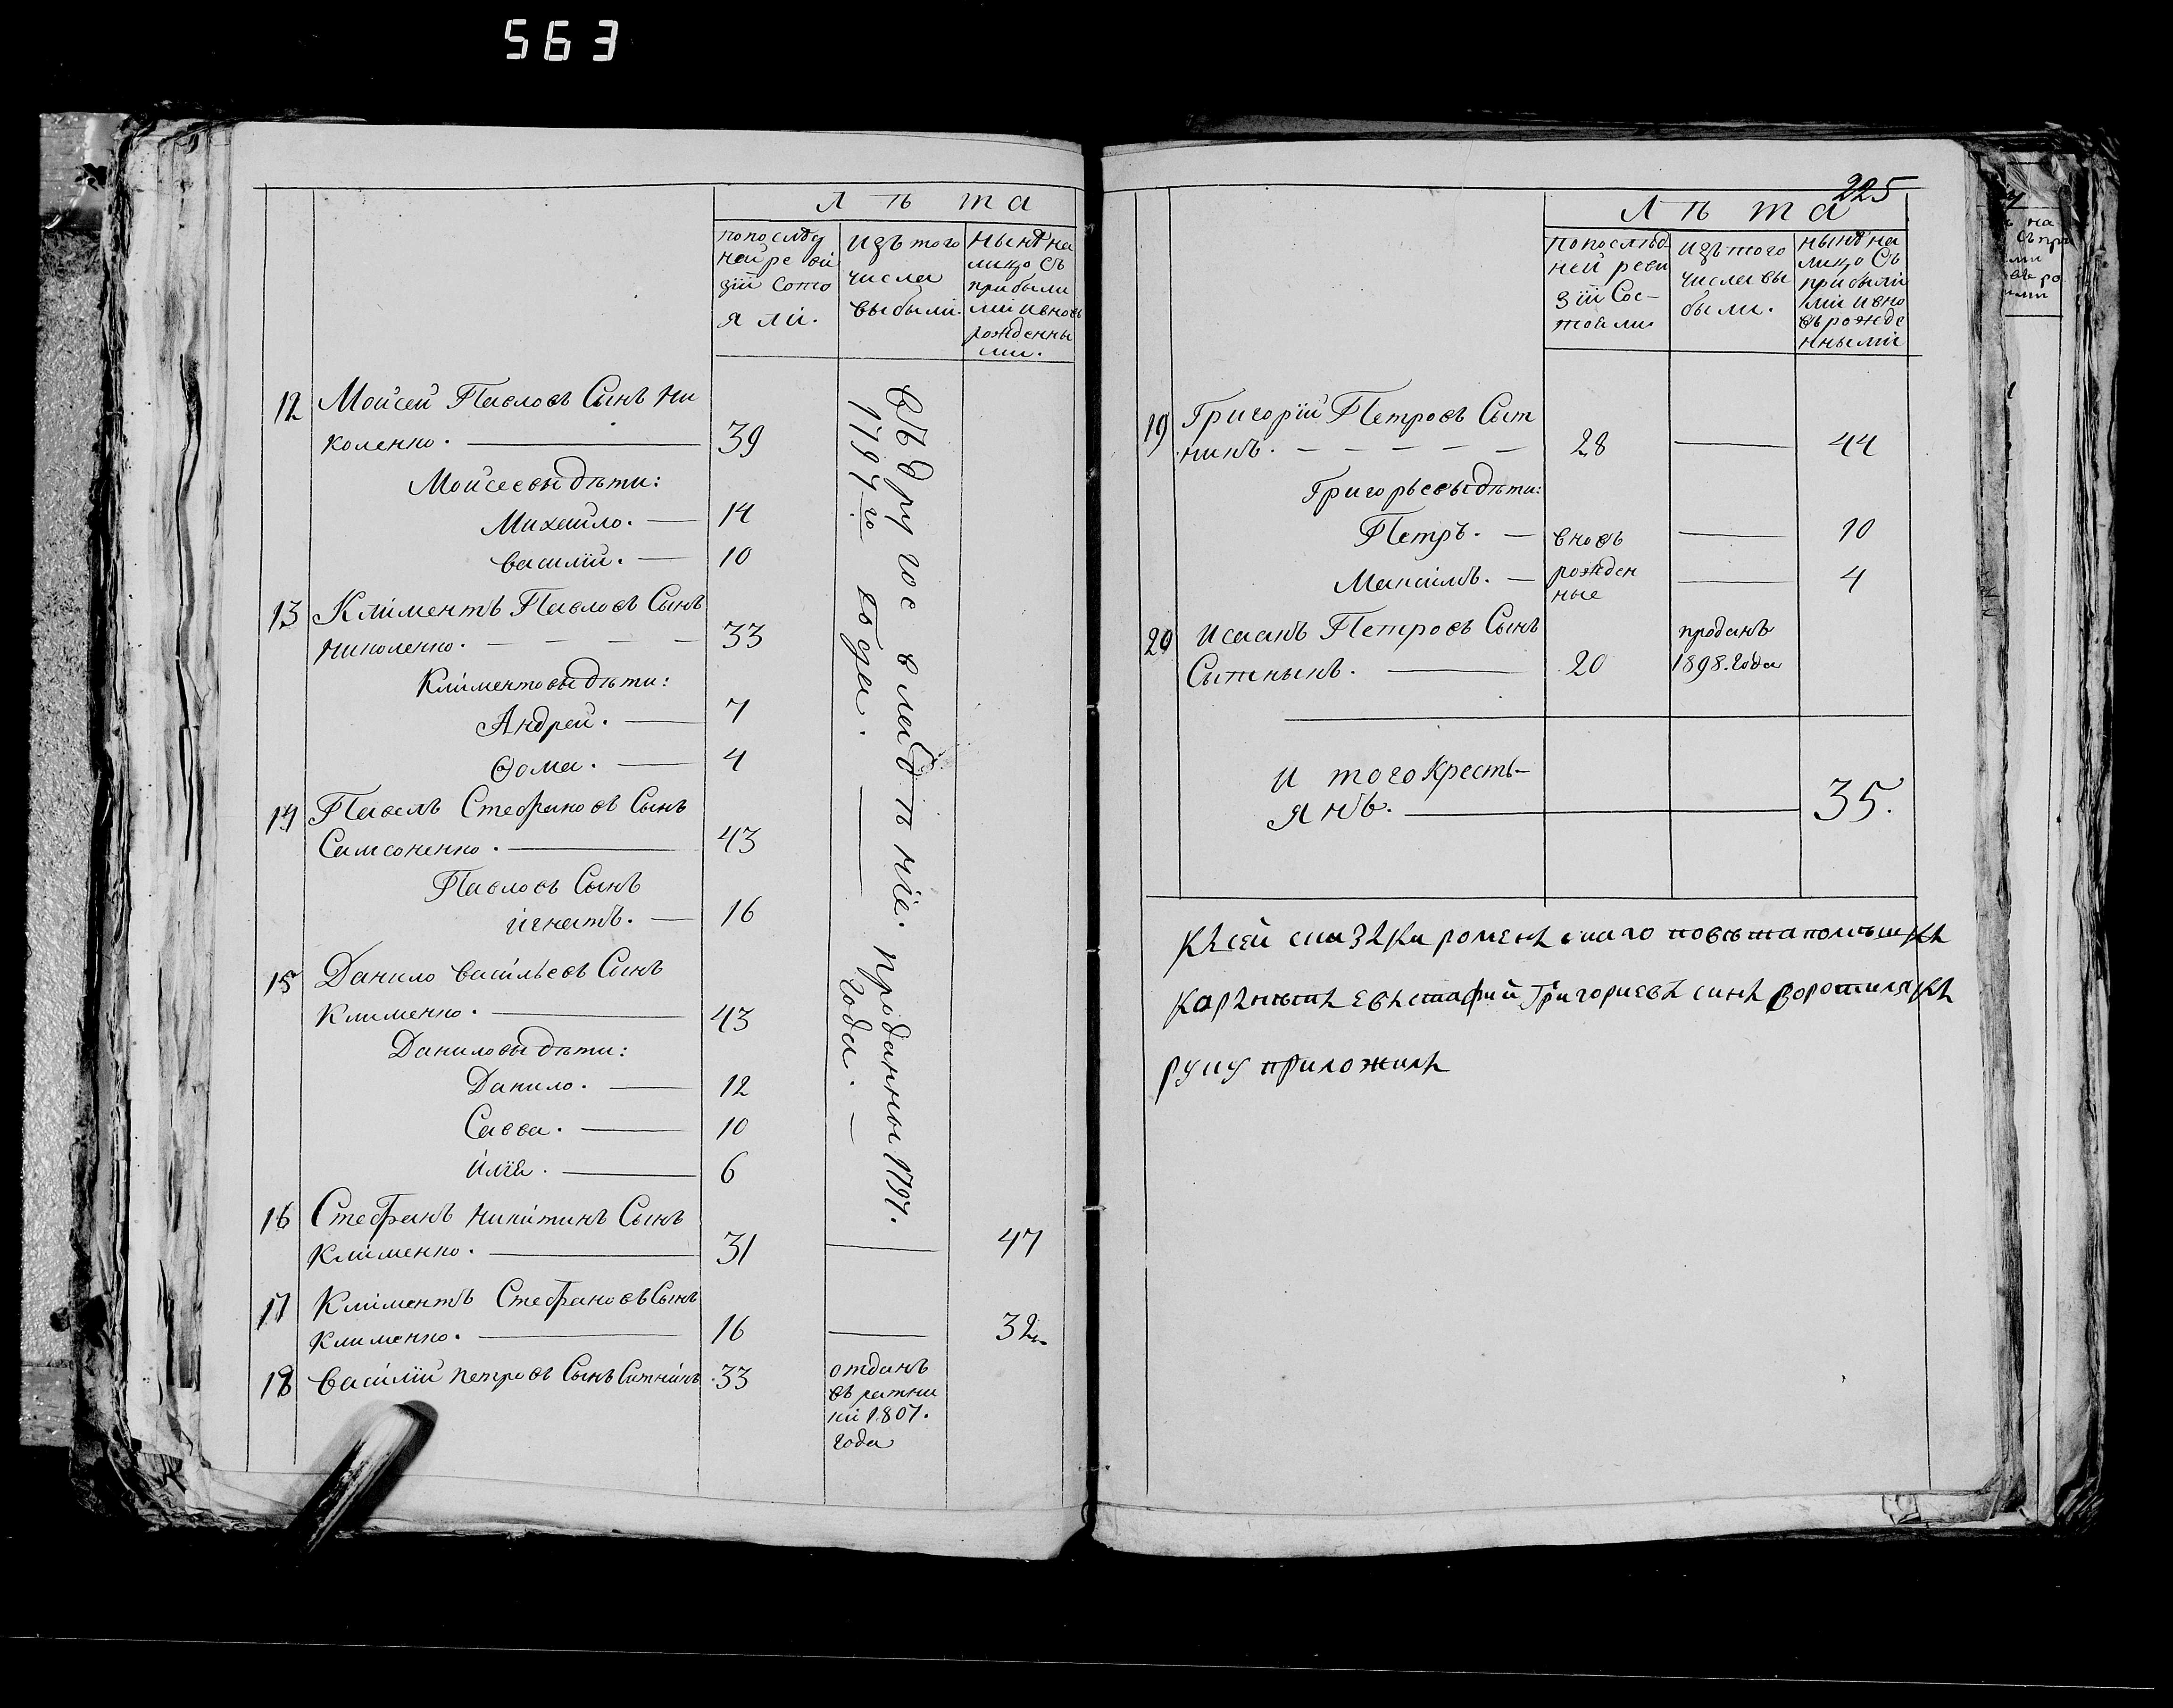 563
Лѣта
попослѣд
ней реви
зіи состо
яли.
изъ того
числа
выбыли.
Нынѣ на
лицо съ
прибылы
ми и вновь
рожденны
ми.
12 Мойсей Павловъ Сынъ Ни
коленко. 39
Мойсеевы дѣти:
Михайло. 14
Василій. 10
13 Климентъ Павловъ Сынъ
Николенко. 33
Климентовы дѣти:
Андрей. 7
Ѳома. 4
14 Павелъ Стефановъ Сынъ
Самсоненко. 43
Павловъ Сынъ
Игнатъ. 16
15 Данило Васильевъ Сынъ
Клименко. 43
Даниловы дѣти:
Данило. 12
Савва. 10
Илія. 6
Въ другое владѣніе. проданны 1797.
1797го года. года.
16 Стефанъ Никитинъ Сынъ
Клименко. 31 47
17 Климентъ Стефановъ Сынъ
Клименко. 16 32
18 Василій Петровъ Сынъ Ситникъ 33
отданъ
въ ратни
ки 1807.
года
225
Лѣта
попослѣд
ней реви
зіи Сос-
тояли
изъ того
числа вы
были.
Нынѣ на
лицо Съ
прибылы
ми и вно
въ рожде
нными
19 Григорій Петровъ Сыт
никъ. 28 44
Григорьевы дѣти:
Петръ. вновь 10
Мануилъ. рожден 4
ные
20 Исаакъ Петровъ Сынъ проданъ
Сытныкъ. 20 1898. года
И того Кресть-
янъ. 35.
Къ сей сказъки роменъскаго повѣта помѣщикъ
каръниетъ Евъстафий Григориевъ синъ Воротилякъ
руку приложилъ